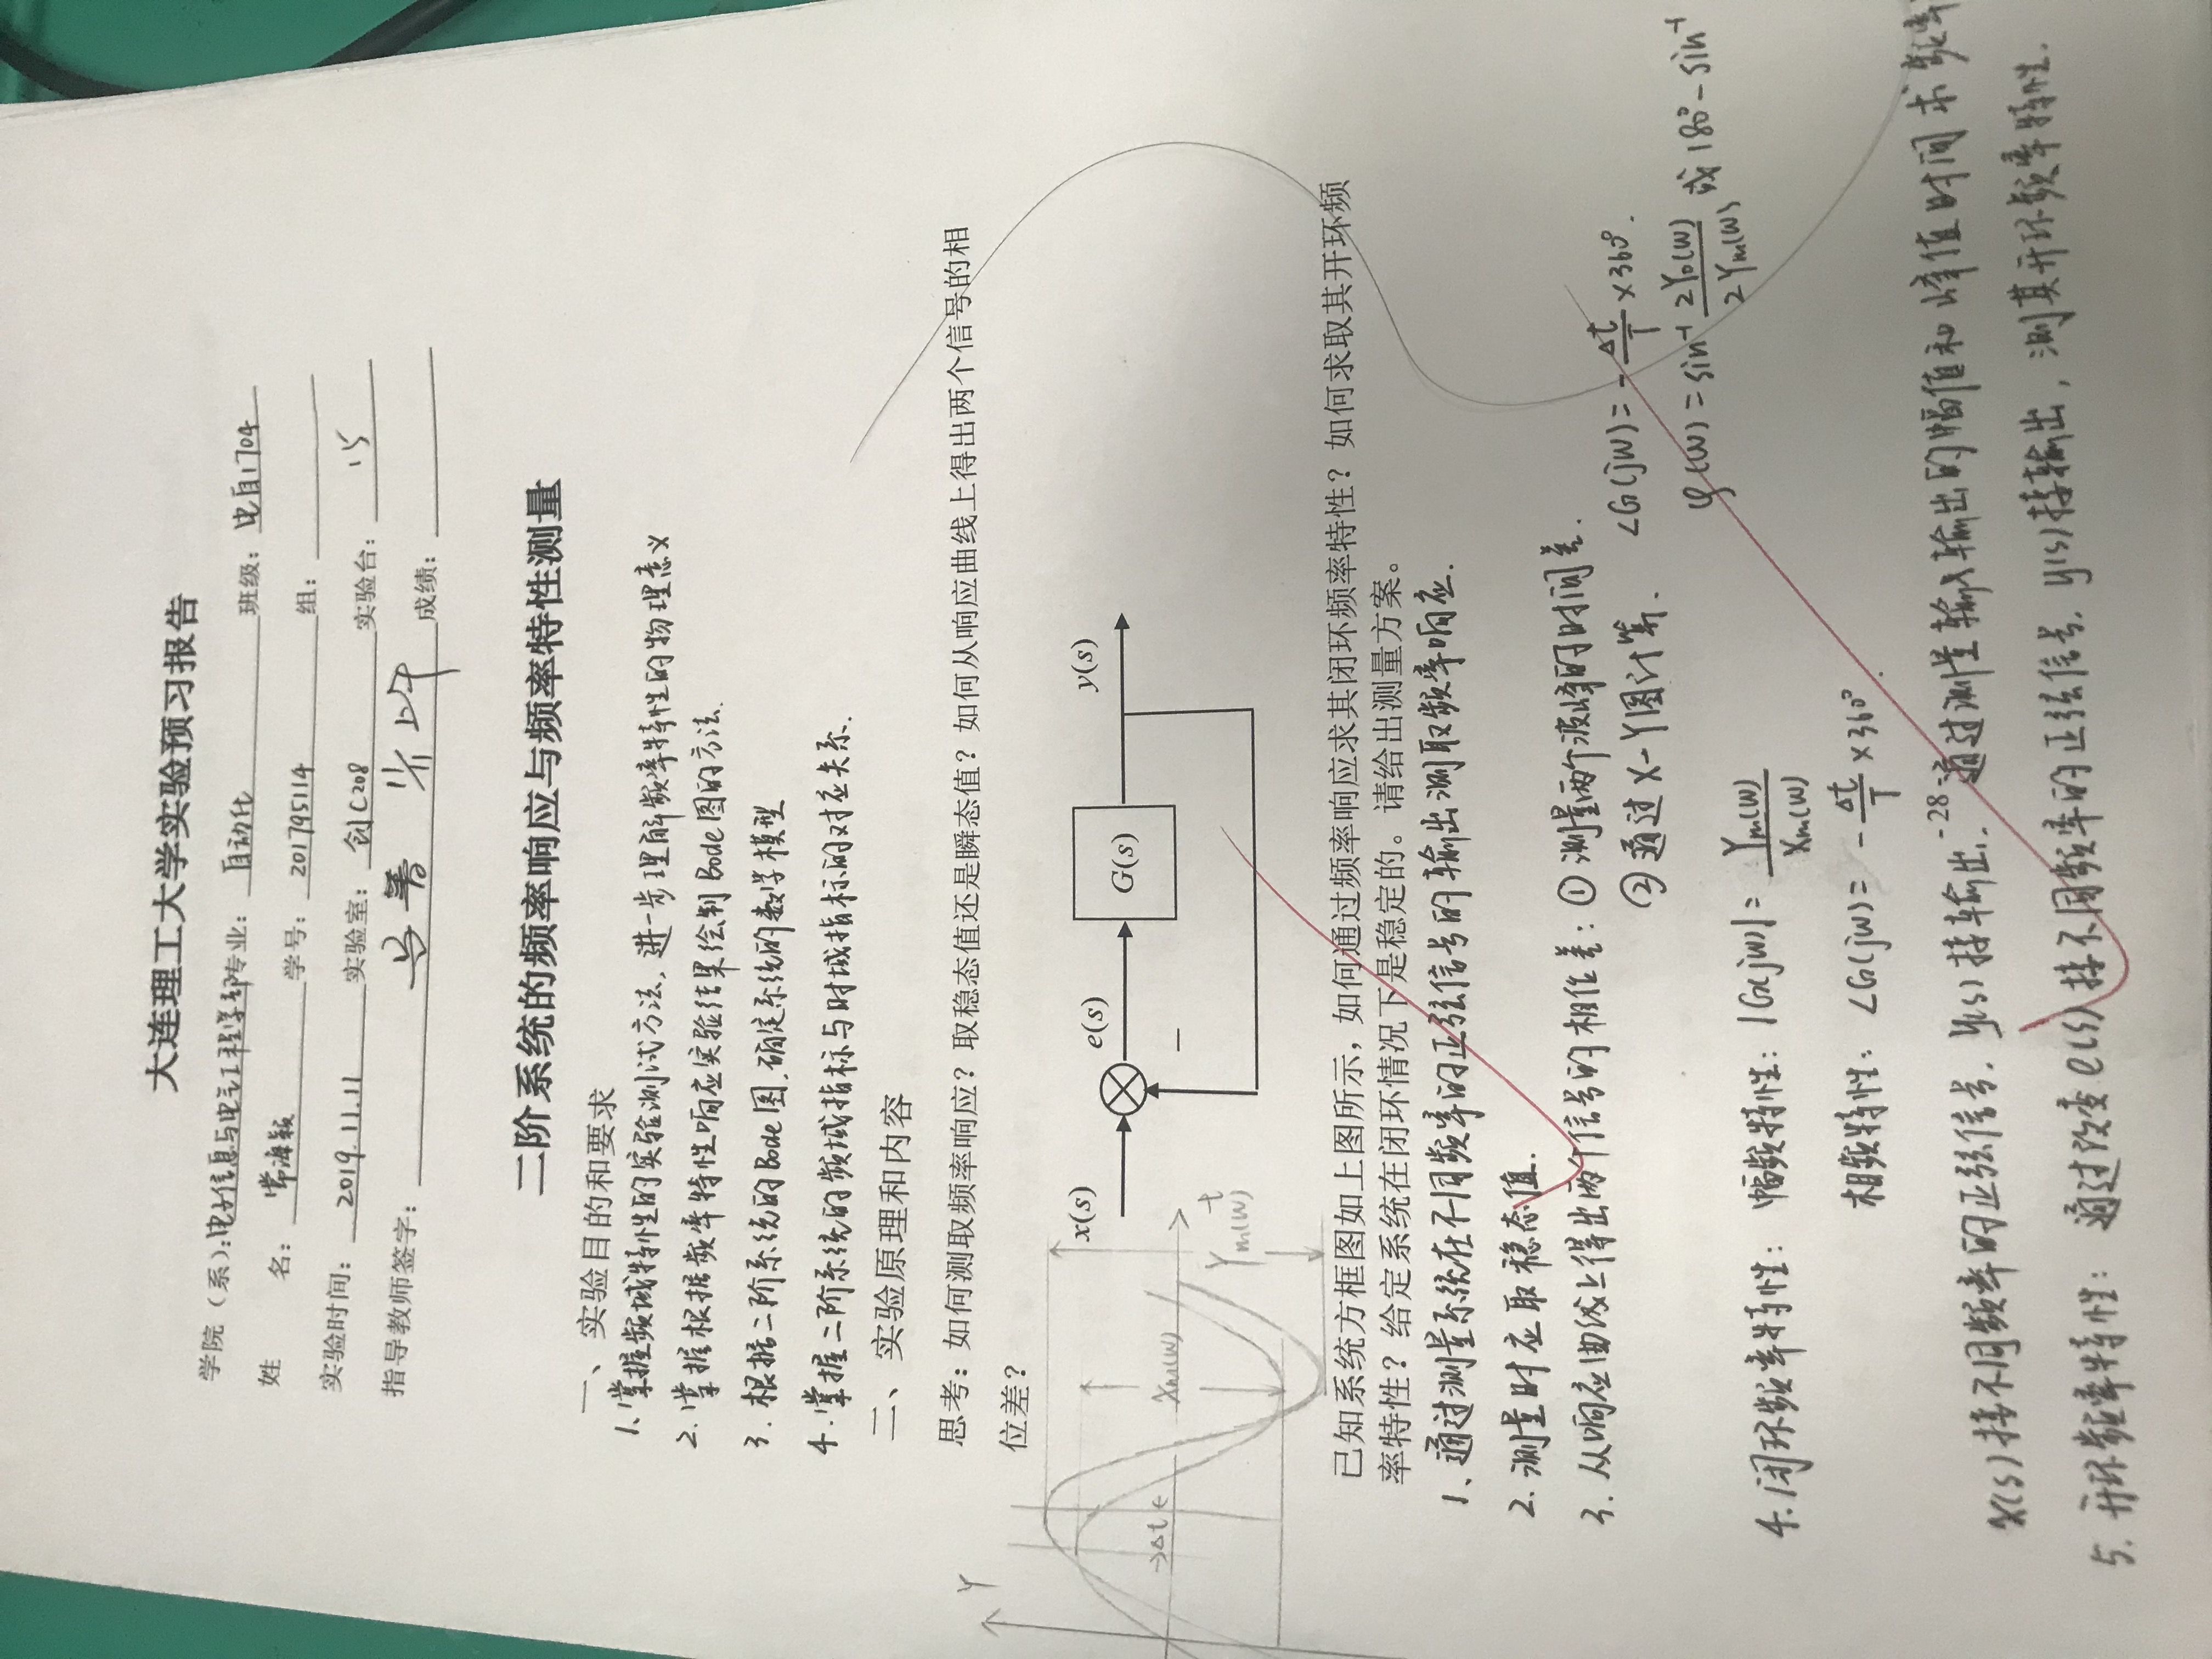 大连理工大学实验预习报告
学院（系）：电子信息与电气工程学部 专业： 自动化 班级： 电自1704
姓 名： 常海颖 学号： 201795114 组：
实验时间： 2019.11.11 实验室： 创C208 实验台： 15
指导教师签字： 11/11 上午 成绩：
二阶系统的频率响应与频率特性测量
一、实验目的和要求
1、掌握频域特性的实验测试方法，进一步理解频率特性的物理意义
2. 掌握根据频率特性响应实验结果绘制Bode图的方法.
3. 根据二阶系统的Bode图，确定系统的数学模型
4. 掌握二阶系统的频域指标与时域指标的对应关系.
二、实验原理和内容
思考：如何测取频率响应？取稳态值还是瞬态值？如何从响应曲线上得出两个信号的相
位差？
Y
→Δt←
Xm(w)
t
Ym(w)
x(s)
e(s)
G(s)
y(s)
−
已知系统方框图如上图所示，如何通过频率响应求其闭环频率特性？如何求取其开环频
率特性？给定系统在闭环情况下是稳定的。请给出测量方案。
1、通过测量系统在不同频率的正弦信号的输出测取频率响应.
2. 测量时应取稳态值.
3. 从响应曲线上得出两个信号的相位差：① 测量两个波峰的时间差. ∠G(jw)= -Δt/T ×360°.
② 通过X-Y图计算. φ(w)=sin⁻¹ 2Y₀(w)/2Ym(w) 或 180°-sin⁻¹
4. 闭环频率特性： 幅频特性：|G(jw)|= Ym(w)/Xm(w)
相频特性： ∠G(jw)= -Δt/T ×360°.
- 28 -
x(s)接不同频率的正弦信号. y(s)接输出. 通过测量输入输出的幅值和峰值时间求频率
5. 开环频率特性： 通过改变e(s)接不同频率的正弦信号. y(s)接输出，测其开环频率特性.